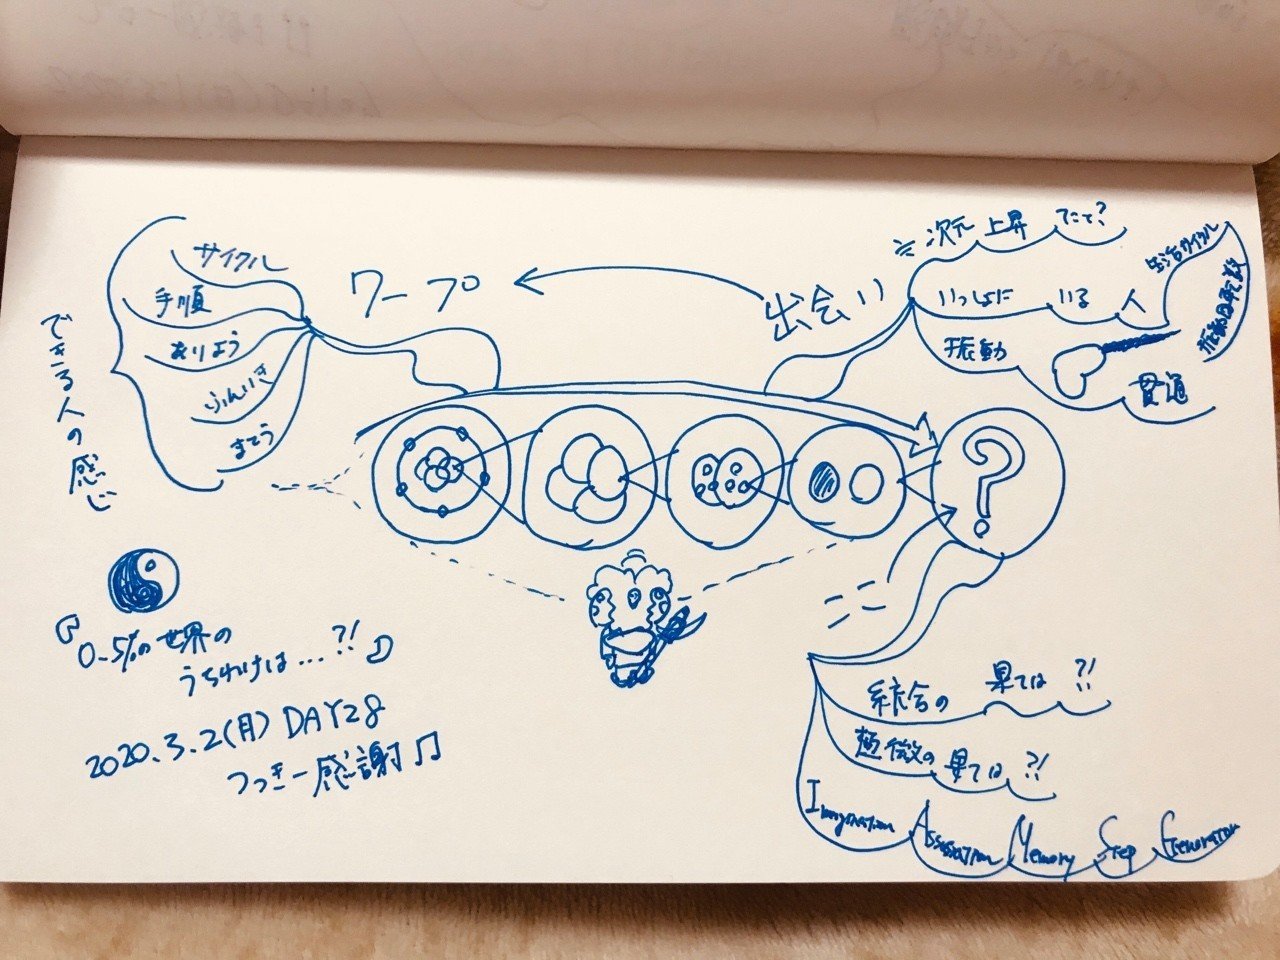 できる人の感じ
サイクル
手順
ありよう
ふんいき
まとう
ワープ
出会い
次元上昇
いっしょにいる人
生活サイクル
振動
貫通
?
『0.5%の世界の
うちわけは…?!』
2020.3.2(月) DAY28
つっきー感謝♫
結合の果ては?!
極微の果ては?!
Imagination Association Memory Step Generator